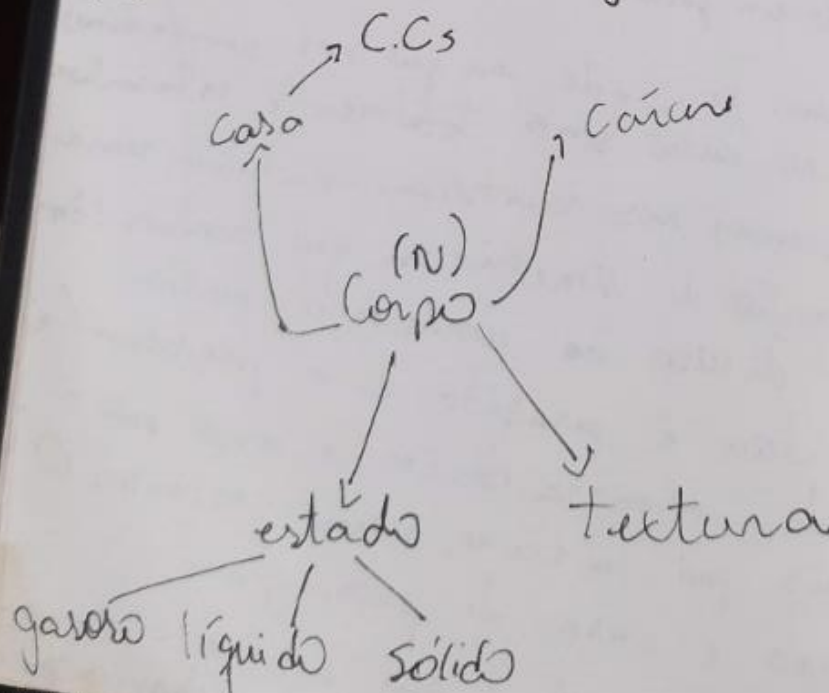 C.Cs
Casa
(N)
Corpo
estado
textura
gasoso líquido sólido